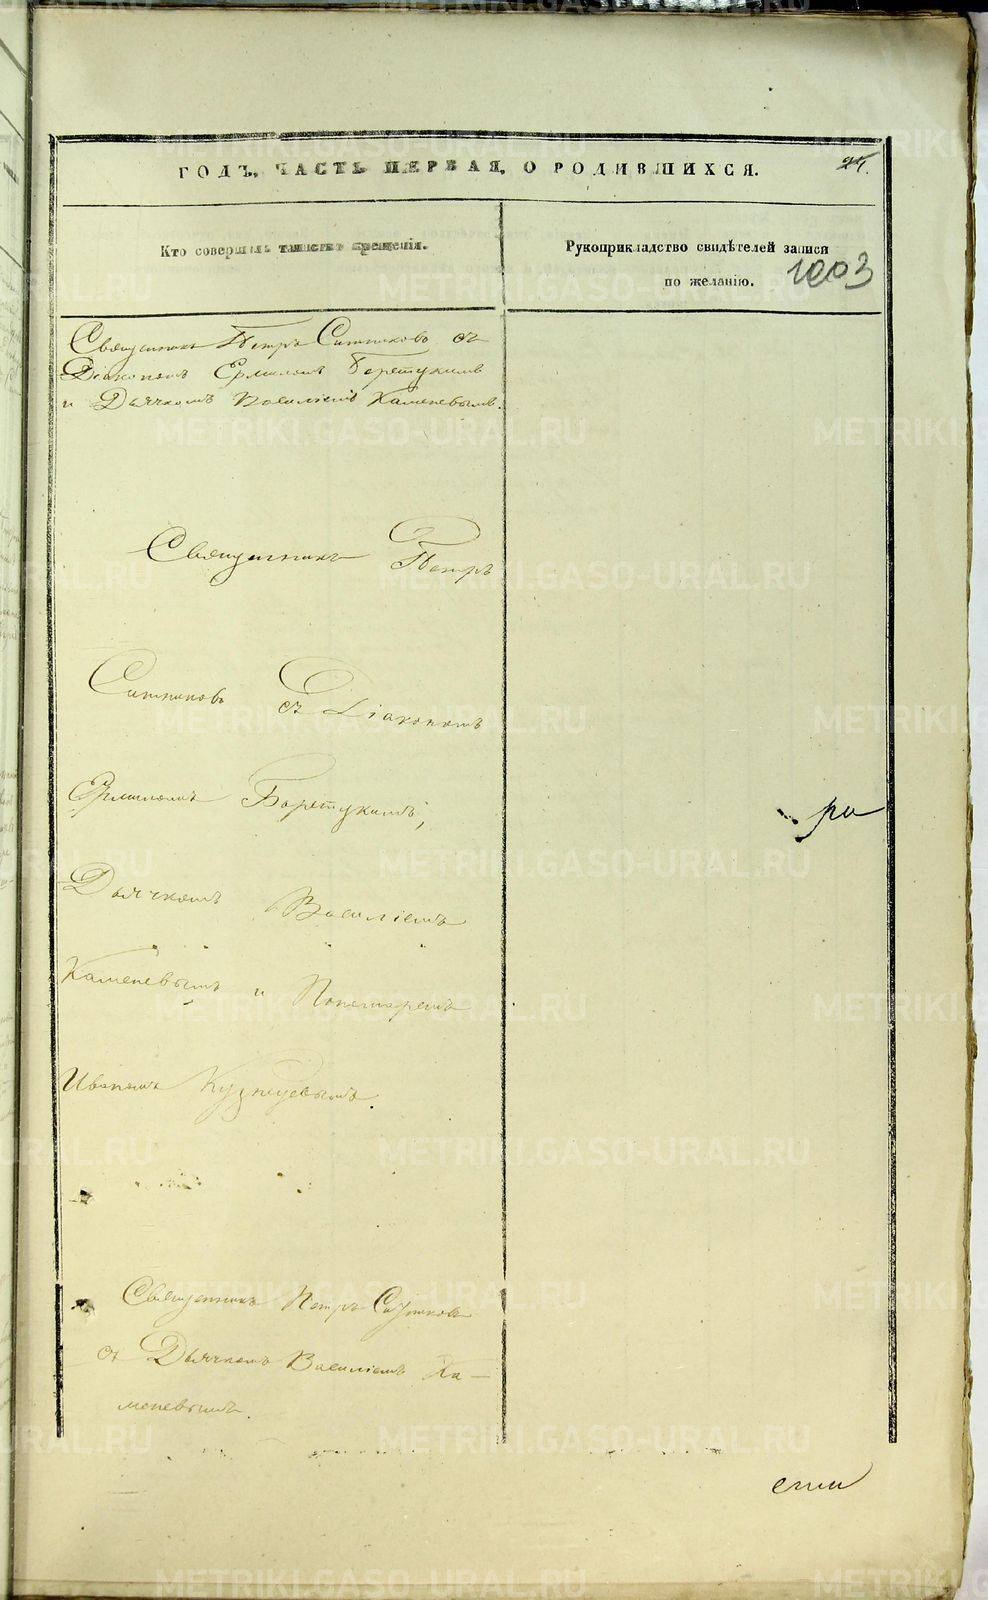 ГОДЪ, ЧАСТЬ ПЕРВАЯ, О РОДИВШИХСЯ.
24.
Кто совершалъ таинство крещенія.
Рукоприкладство свидѣтелей записи
по желанію.
1003
Священникъ Петръ Ситниковъ съ
Діакономъ Ермиломъ
и Дьячкомъ Василіемъ Каменевымъ.
Священникъ Петръ
Ситниковъ съ Діакономъ
Ермиломъ
ри
Дьячкомъ Василіемъ
Каменевымъ и Пономаремъ
Иваномъ Кузнецовымъ.
Священникъ Петръ Ситниковъ
съ Дьячкомъ Василіемъ Ка-
меневымъ.
METRIKI.GASO-URAL.RU